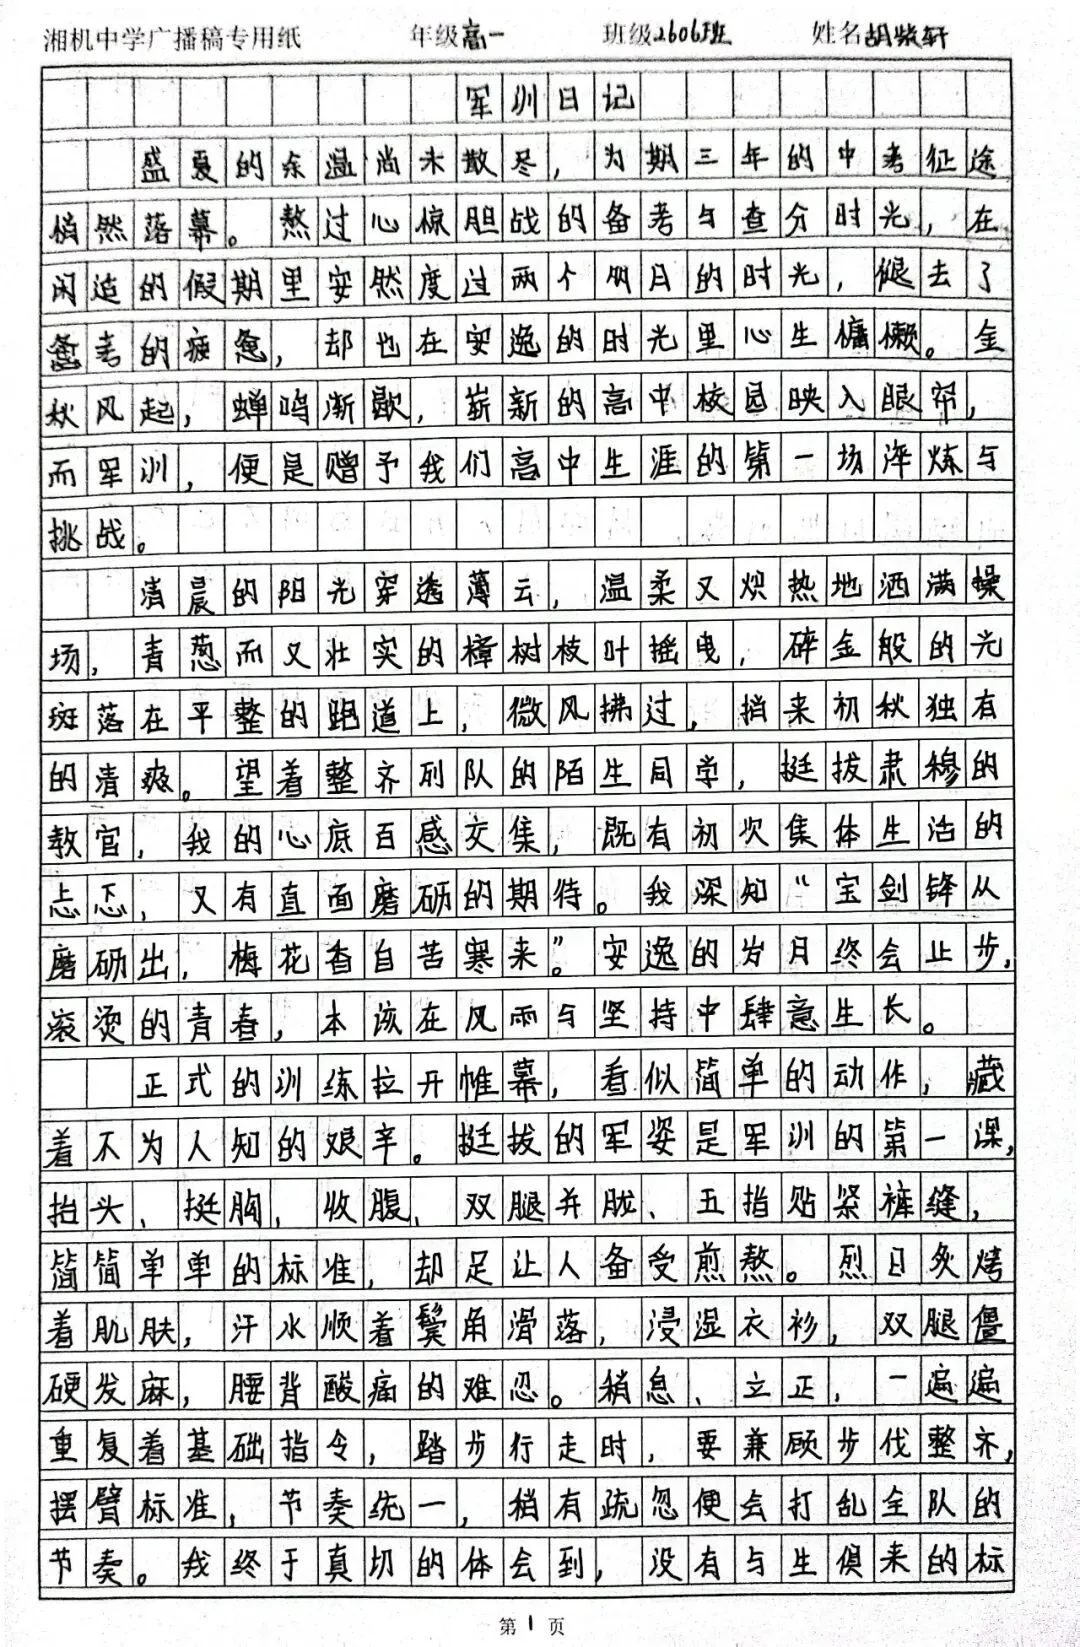 湘机中学广播稿专用纸 年级高一 班级2606班 姓名胡紫轩
军训日记
盛夏的余温尚未散尽，为期三年的中考征途
悄然落幕。熬过心惊胆战的备考与查分时光，在
闲适的假期里安然度过两个多月的时光，褪去了
备考的疲惫，却也在安逸的时光里心生慵懒。金
秋风起，蝉鸣渐歇，崭新的高中校园映入眼帘，
而军训，便是赠予我们高中生涯的第一场淬炼与
挑战。
清晨的阳光穿透薄云，温柔又炽热地洒满操
场，青葱而又壮实的樟树枝叶摇曳，碎金般的光
斑落在平整的跑道上，微风拂过，捎来初秋独有
的清爽。望着整齐列队的陌生同学，挺拔肃穆的
教官，我的心底百感交集，既有初次集体生活的
忐忑，又有直面磨砺的期待。我深知“宝剑锋从
磨砺出，梅花香自苦寒来”。安逸的岁月终会止步，
滚烫的青春，本该在风雨与坚持中肆意生长。
正式的训练拉开帷幕，看似简单的动作，藏
着不为人知的艰辛。挺拔的军姿是军训的第一课，
抬头、挺胸、收腹、双腿并胧、五指贴紧裤缝，
简简单单的标准，却足让人备受煎熬。烈日炙烤
着肌肤，汗水顺着鬓角滑落，浸湿衣衫，双腿僵
硬发麻，腰背酸痛的难忍。稍息、立正，一遍遍
重复着基础指令，踏步行走时，要兼顾步伐整齐，
摆臂标准，节奏统一，稍有疏忽便会打乱全队的
节奏。我终于真切的体会到，没有与生俱来的标
第1页